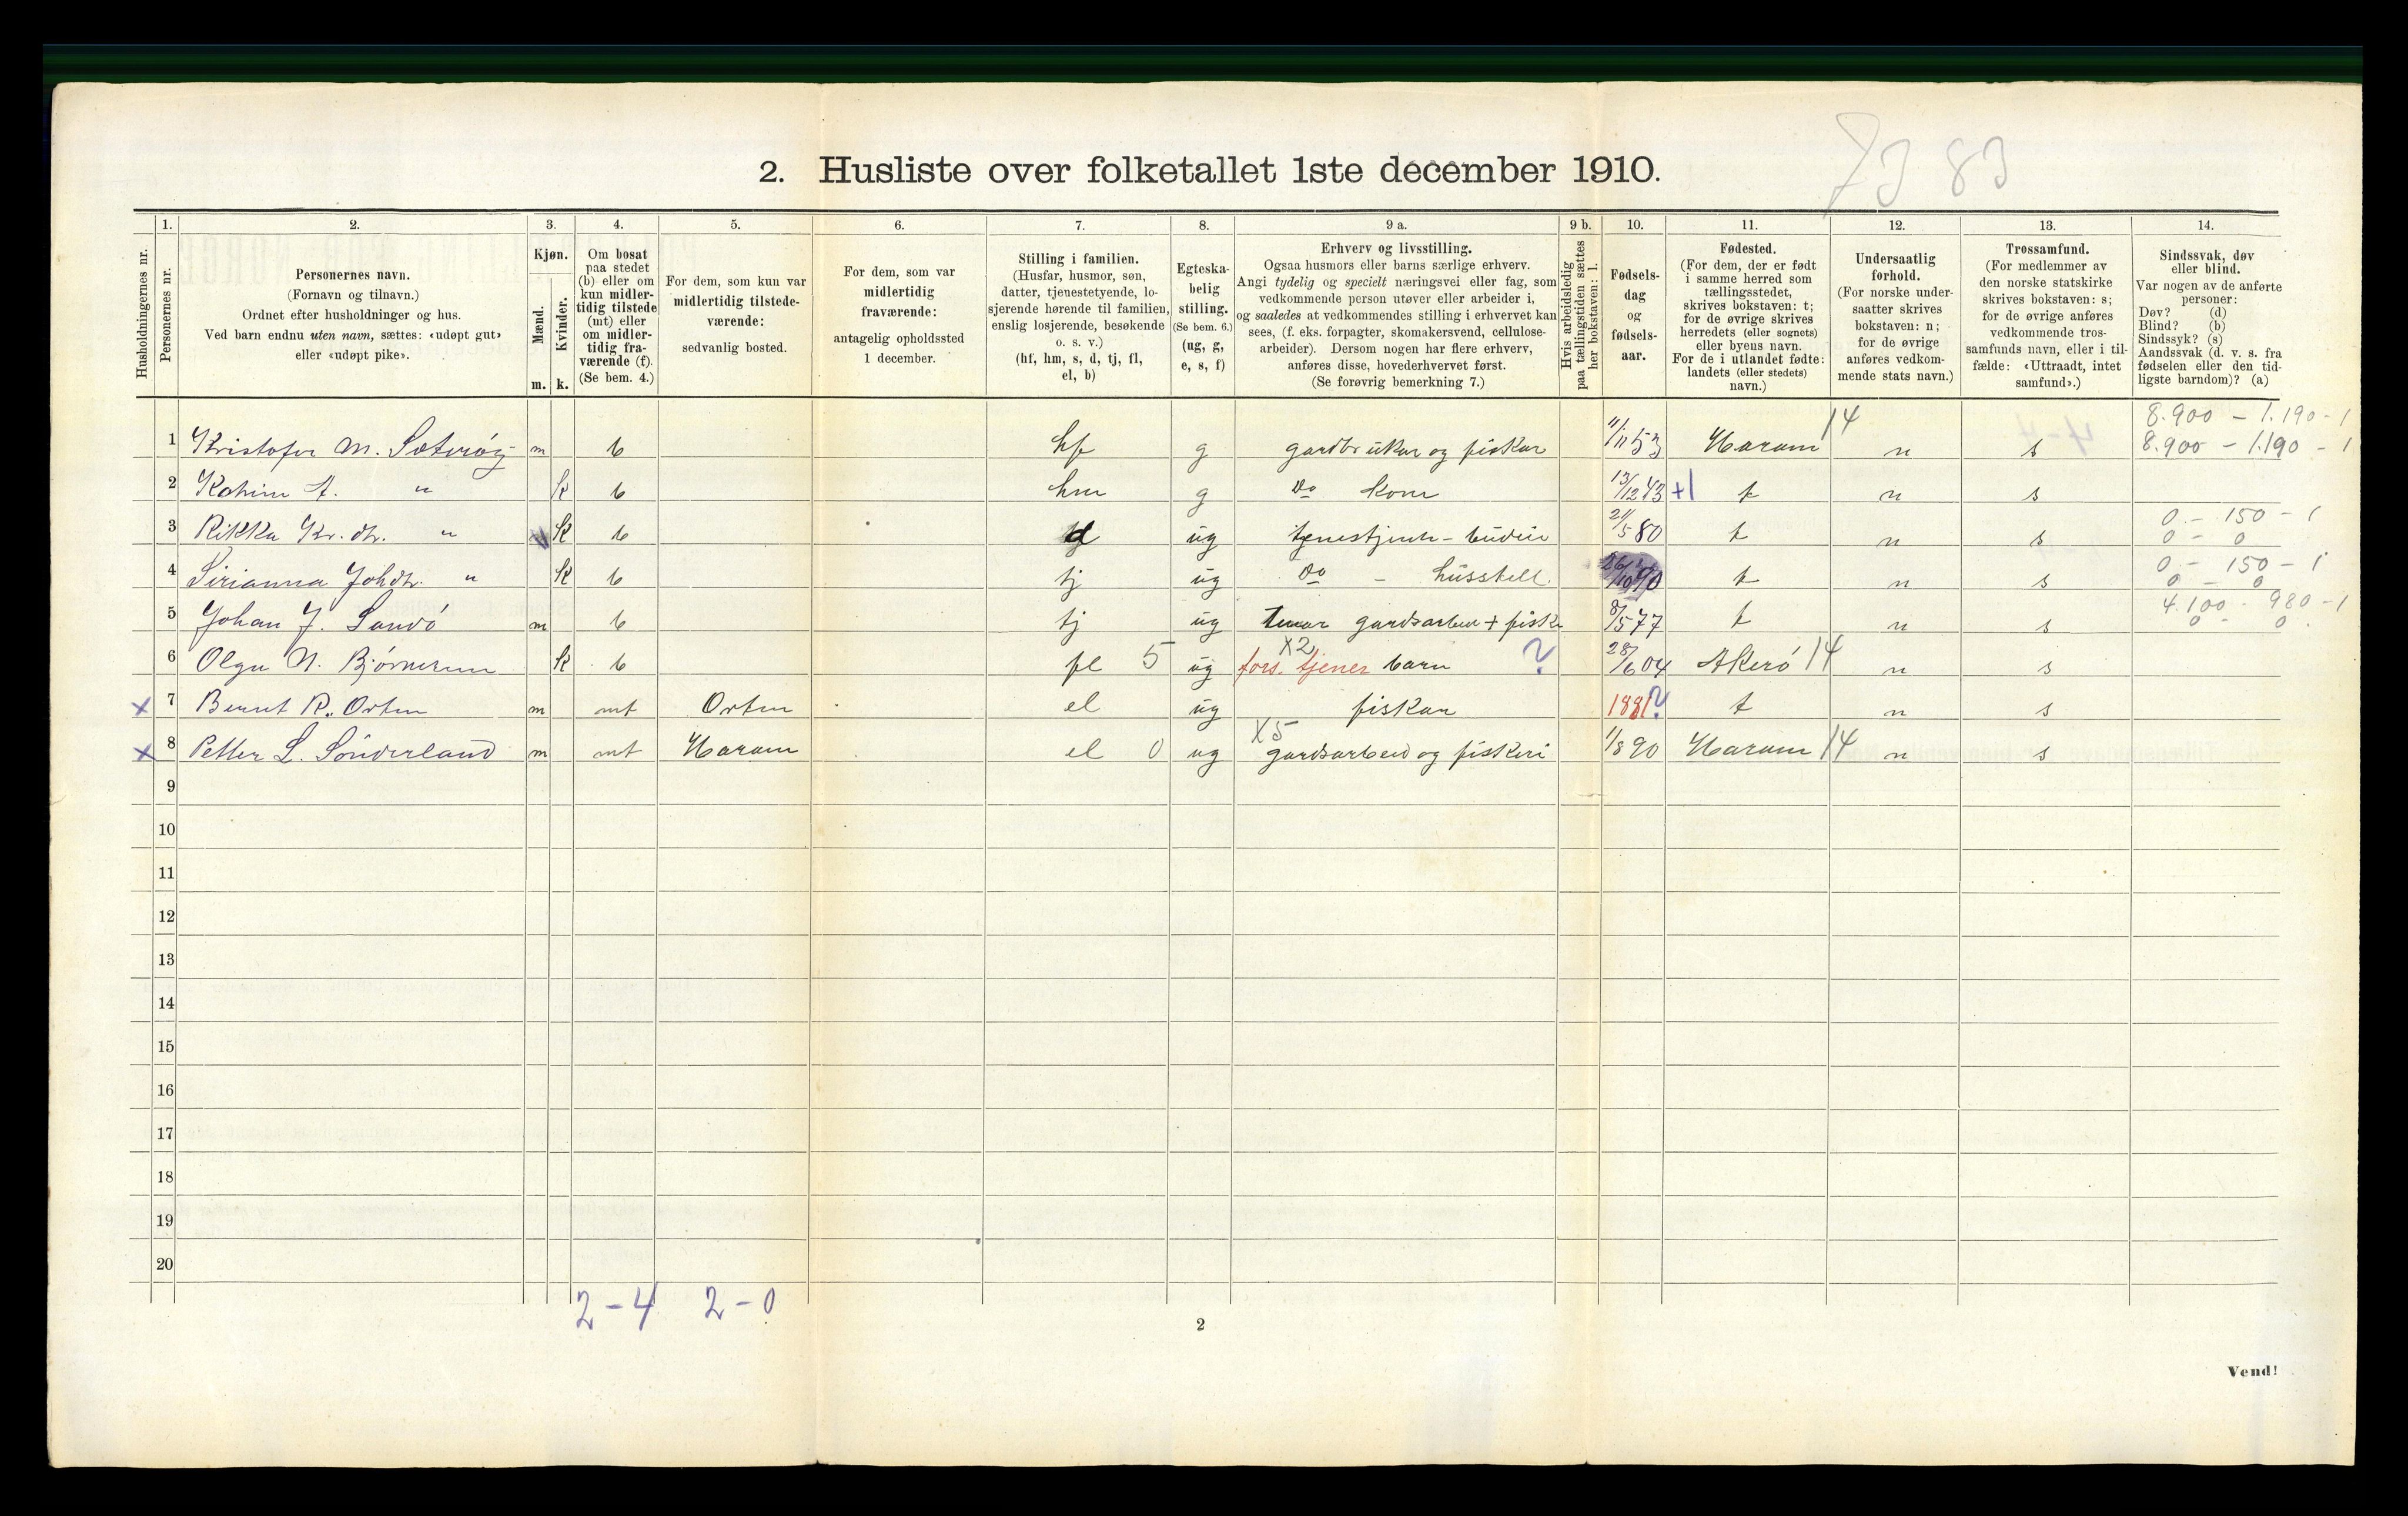 73 83
2. Husliste over folketallet 1ste december 1910.
Husholdningernes nr.
1.
Personernes nr.
2.
Personernes navn.
(Fornavn og tilnavn.)
Ordnet efter husholdninger og hus.
Ved barn endnu uten navn, sættes: «udøpt gut»
eller «udøpt pike».
3.
Kjøn.
Mænd.
Kvinder.
m. k.
4.
Om bosat
paa stedet
(b) eller om
kun midler-
tidig tilstede
(mt) eller
om midler-
tidig fra-
værende (f).
(Se bem. 4.)
5.
For dem, som kun var
midlertidig tilstede-
værende:
sedvanlig bosted.
6.
For dem, som var
midlertidig
fraværende:
antagelig opholdssted
1 december.
7.
Stilling i familien.
(Husfar, husmor, søn,
datter, tjenestetyende, lo-
sjerende hørende til familien,
enslig losjerende, besøkende
o. s. v.)
(hf, hm, s, d, tj, fl,
el, b)
8.
Egteska-
belig
stilling.
(Se bem. 6.)
(ug, g,
e, s, f)
9 a.
Erhverv og livsstilling.
Ogsaa husmors eller barns særlige erhverv.
Angi tydelig og specielt næringsvei eller fag, som
vedkommende person utøver eller arbeider i,
og saaledes at vedkommendes stilling i erhvervet kan
sees, (f. eks. forpagter, skomakersvend, cellulose-
arbeider). Dersom nogen har flere erhverv,
anføres disse, hovederhvervet først.
(Se forøvrig bemerkning 7.)
9 b.
Hvis arbeidsledig
paa tællingstiden sættes
her bokstaven: l.
10.
Fødsels-
dag
og
fødsels-
aar.
11.
Fødested.
(For dem, der er født
i samme herred som
tællingsstedet,
skrives bokstaven: t;
for de øvrige skrives
herredets (eller sognets)
eller byens navn.
For de i utlandet fødte:
landets (eller stedets)
navn.)
12.
Undersaatlig
forhold.
(For norske under-
saatter skrives
bokstaven: n;
for de øvrige
anføres vedkom-
mende stats navn.)
13.
Trossamfund.
(For medlemmer av
den norske statskirke
skrives bokstaven: s;
for de øvrige anføres
vedkommende tros-
samfunds navn, eller i til-
fælde: «Uttraadt, intet
samfund».)
14.
Sindssvak, døv
eller blind.
Var nogen av de anførte
personer:
Døv? (d)
Blind? (b)
Sindssyk? (s)
Aandssvak (d. v. s. fra
fødselen eller den tid-
ligste barndom)? (a)
8.900 - 1.190 - 1
1 Kristofer M. Sæterøy m b hf g gardbrukar og fiskar 11/11 53 Haram 14 n s 8.900 - 1.190 - 1
2 A. " k b hm g Do kone 13/12 43 +1 t n s
0 - 150 - 1
3 Rikka Kr. dtr. " k b d ug - budeie 21/5 80 t n s 0 - 0
0 - 150 - 1
4 Sirianna Johdtr. " k b tj ug Do - husstell 26/10 90 t n s 0 - 0
4.100 - 980 - 1
5 Johan J. Sandö m b tj ug gardsarbeid + fiske 8/5 77 t n s 0 - 0.
X2
6 Olga N. k b fl 5 ug fors. tjener barn ? 28/6 04 Akerö 14 n s
x 7 Bernt R. Orten m mt Orten el ug fiskar 1881? t n s
X5
x 8 Petter L. Sönderland m mt Haram el 0 ug gardsarbeid og fiskeri 1/8 90 Haram 14 n s
9
10
11
12
13
14
15
16
17
18
19
20
2 - 4 2 - 0
2
Vend!